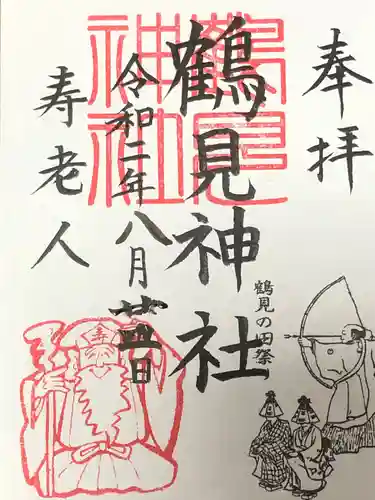 奉拝
鶴見神社
鶴見の田祭
令和二年八月
日
寿老人
鶴見
神社
寿